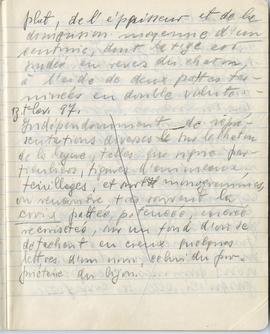 plat, de l'épaisseur et de la
dimension moyenne d'un
centime, dont la tige est
au revers du chaton,
à l'aide de deux pattes ter-
minées en double volute.
Indépendamment de repré-
sentations diverses le chaton
de la bague, tels que signes par-
ticuliers, figures d'animaux,
et monogrammes,
on rencontre très souvent la
croix pattée, potencée, ancrée
recroisetée, sur un fond d'où se
détachent en creux quelques
lettres d'un nom celui du pro-
priétaire du bijou.